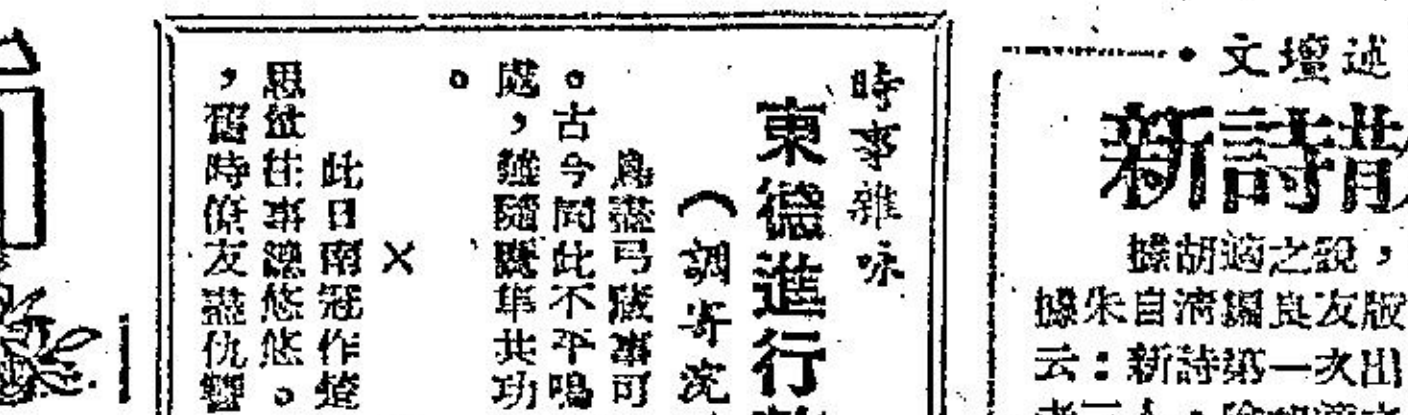 文壇述
新詩散
據胡適之說，
據朱自清編良友版
云：新詩第一次出
時事雜咏
東德進行
（調寄浣
鳥盡弓藏事可
。古今同此不平鳴
處，雞隨厩犇共功
。
×
此日南冠作楚
思量往事總悠悠。
，舊時儕友盡仇讐